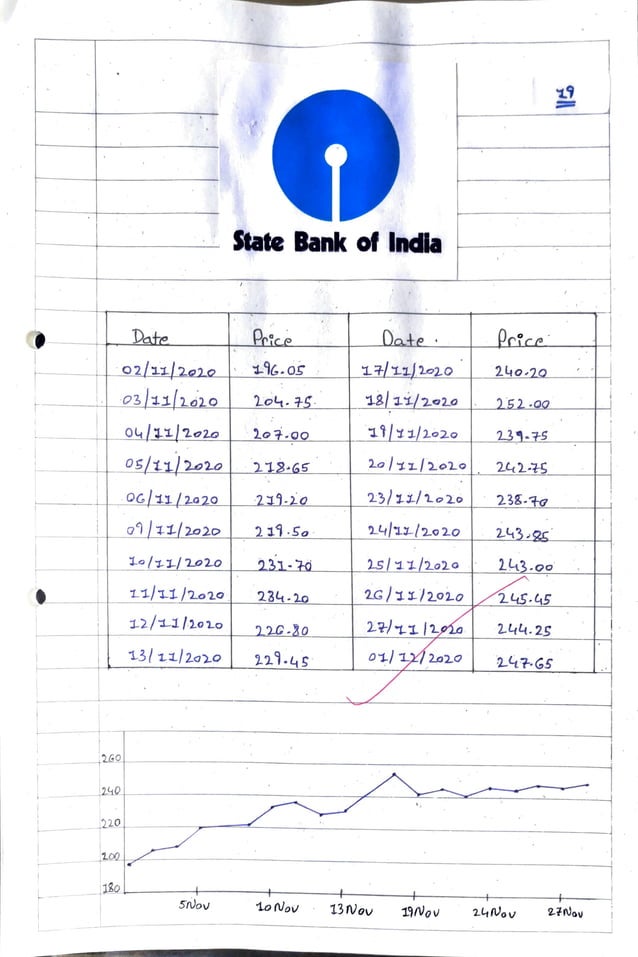 19
State Bank of India
Date Price Date. Price
02/11/2020 196.05 17/11/2020 240.20
03/11/2020 204.75 18/11/2020 252.00
04/11/2020 207.00 19/11/2020 239.75
05/11/2020 218.65 20/11/2020 242.75
06/11/2020 219.20 23/11/2020 238.70
09/11/2020 219.50 24/11/2020 243.85
10/11/2020 231.70 25/11/2020 243.00
11/11/2020 234.20 26/11/2020 245.45
12/11/2020 226.80 27/11/2020 244.25
13/11/2020 229.45 01/12/2020 247.65
260
240
220
200
180
5Nov 10Nov 13Nov 19Nov 24Nov 27Nov